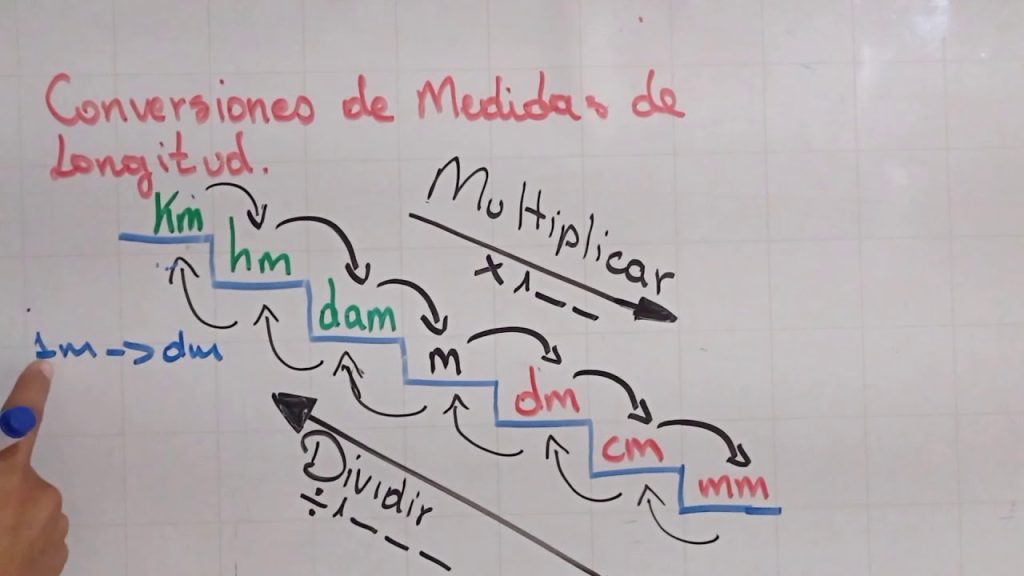 Conversiones de Medidas de
Longitud.
Km
hm
dam
m
dm
cm
mm
Multiplicar
x 1 _ _ _
1m -> dm
Dividir
÷ 1 _ _ _ _